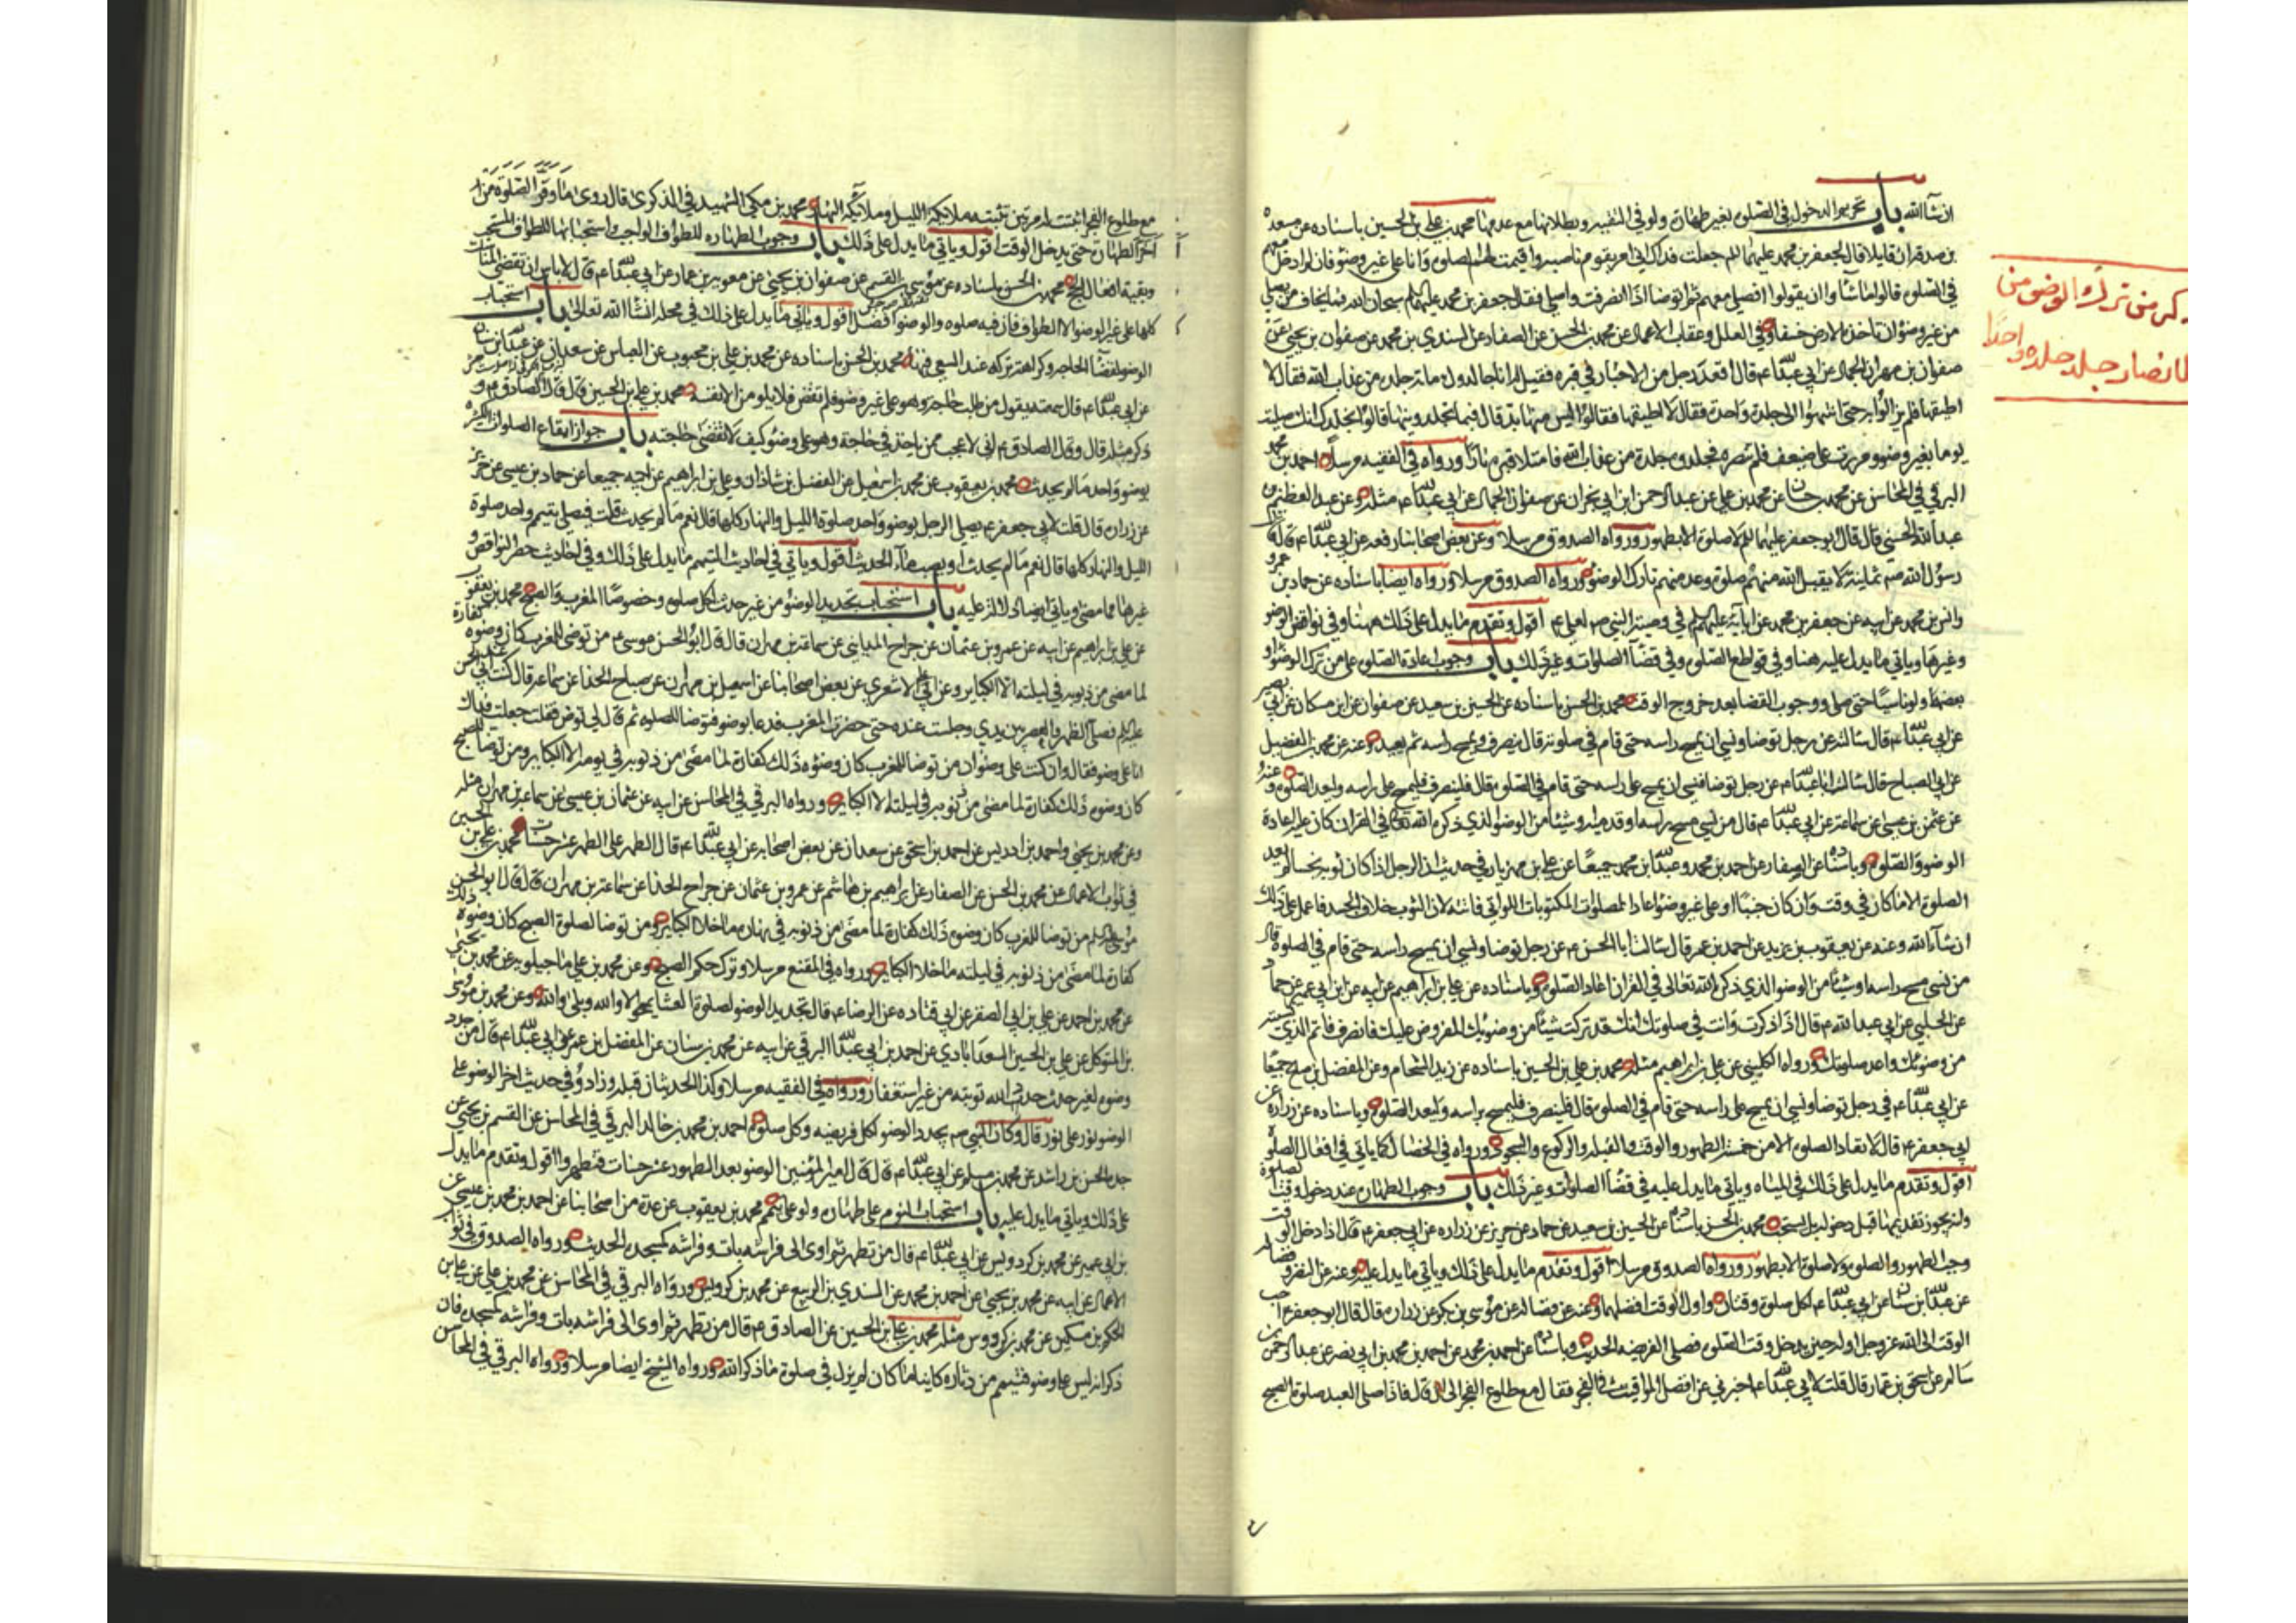 ان شاء الله باب تحريم الدخول في الصلوة بغير طهارة ولو في التقية وبطلانها مع عدمها محمد بن علي بن الحسين باسناده عن مسعدة
بن صدقة ان قايلا قال لجعفر بن محمد عليهما السلم جعلت فداك اني امر بقوم ناصبية وقد اقيمت لهم الصلوة وانا على غير وضوء فان لم ادخل معهم
في الصلوة قالوا ما شاؤا ان يقولوا افاصلي معهم ثم اتوضا اذا انصرفت واصلي فقال جعفر بن محمد عليهما السلم سبحان الله فما يخاف من يصلي
من غير وضوء ان تاخذه الارض خسفا وفي العلل وعقاب الاعمال عن محمد بن الحسن عن الصفار عن السندي بن محمد عن صفوان بن يحيى عن
صفوان بن مهران الجمال عن ابي عبد الله ع قال اقعد رجل من الاخيار في قبره فقيل له انا جالدوك ماة جلدة من عذاب الله فقال لا
اطيقها فلم يزالوا به حتى انتهوا الى جلدة واحدة فقال لا اطيقها فقالوا ليس منها بد قال فبما تجلدونيها قالوا نجلدك انك صليت
يوما بغير وضوء ومررت على ضعيف فلم تنصره فجلدوه جلدة من عذاب الله فامتلا قبره نارا ورواه في الفقيه مرسلا احمد بن محمد
البرقي في المحاسن عن محمد بن حسان عن محمد بن علي عن عبد الرحمن ابن ابي نجران عن صفوان الجمال عن ابي عبد الله ع مثله وعن عبد العظيم بن
عبد الله الحسني قال قال ابو جعفر عليهما السلم لا صلوة الا بطهور ورواه الصدوق مرسلا وعن بعض اصحابنا رفعه عن ابي عبد الله ع قال قال
رسول الله ص ثمانية لا يقبل الله منهم صلوة وعد منهم تارك الوضوء ورواه الصدوق مرسلا ورواه ايضا باسناده عن حماد بن عمرو
وانس بن محمد عن ابيه عن جعفر بن محمد عن ابائه عليهم السلم في وصية النبي ص لعلي ع اقول وتقدم ما يدل على ذلك هنا وفي نواقض الوضوء
وغيرها وياتي ما يدل عليه هنا وفي قواطع الصلوة وفي قضاء الصلوات وغير ذلك باب وجوب اعادة الصلوة على من ترك الوضوء او
بعضه ولو ناسيا حتى صلى ووجوب القضا بعد خروج الوقت محمد بن الحسن باسناده عن الحسين بن سعيد عن صفوان عن ابن مسكان عن ابي بصير
عن ابي عبد الله ع قال سالته عن رجل توضا ونسي ان يمسح راسه حتى قام في صلوته قال ينصرف ويمسح راسه ثم يعيد وعنه عن محمد بن الفضيل
عن ابي الصباح قال سالت ابا عبد الله ع عن رجل توضا فنسي ان يمسح على راسه حتى قام في الصلوة قال فلينصرف فليمسح على راسه وليعد الصلوة وعنه
عن عثمن بن عيسى عن سماعة عن ابي عبد الله ع قال من نسي مسح راسه او قدميه او شيئا من الوضوء الذي ذكره الله تعالى في القران كان عليه اعادة
الوضوء والصلوة وباسناده عن الصفار عن احمد بن محمد وعبد الله بن محمد جميعا عن علي بن مهزيار في حديث ان الرجل اذا كان ثوبه نجسا لم يعد
الصلوة الا ما كان في وقت وان كان جنبا او على غير وضوء اعاد الصلوات المكتوبات اللواتي فاتته لان الثوب خلاف الجسد فاعمل على ذلك
ان شاء الله وعنه عن يعقوب بن يزيد عن احمد بن عمر قال سالت ابا الحسن ع عن رجل توضا ونسي ان يمسح راسه حتى قام في الصلوة قال
من نسي مسح راسه او شيئا من الوضوء الذي ذكره الله تعالى في القران اعاد الصلوة وباسناده عن علي بن ابراهيم عن ابيه عن ابن ابي عمير عن حماد
عن الحلبي عن ابي عبد الله ع قال اذا ذكرت وانت في صلوتك انك قد تركت شيئا من وضوئك المفروض عليك فانصرف فاتم الذي نسيته
من وضوئك واعد صلوتك ورواه الكليني عن علي بن ابراهيم مثله محمد بن علي بن الحسين باسناده عن زيد الشحام وعن المفضل بن صالح جميعا
عن ابي عبد الله ع في رجل توضا ونسي ان يمسح على راسه حتى قام في الصلوة قال فلينصرف فليمسح براسه وليعد الصلوة وباسناده عن زرارة عن
ابي جعفر ع قال لا تعاد الصلوة الا من خمسة الطهور والوقت والقبلة والركوع والسجود ورواه في الخصال كما ياتي في افعال الصلوة
اقول وتقدم ما يدل على ذلك في المياه وياتي ما يدل عليه في قضاء الصلوات وغير ذلك باب وجوب الطهارة عند دخول وقت الصلوة
وانه يجوز تقديمها قبل دخوله بل يستحب محمد بن الحسن باسناده عن الحسين بن سعيد عن حماد عن حريز عن زرارة عن ابي جعفر ع قال اذا دخل الوقت
وجب الطهور والصلوة ولا صلوة الا بطهور ورواه الصدوق مرسلا اقول وتقدم ما يدل على ذلك وياتي ما يدل عليه وعنه عن النضر وفضالة
عن عبد الله بن سنان عن ابي عبد الله ع لكل صلوة وقتان واول الوقت افضلهما وعنه عن فضالة عن موسى بن بكر عن زرارة قال قال ابو جعفر ع احب
الوقت الى الله عز وجل اوله حين يدخل وقت الصلوة فصل الفريضة الحديث وباسناده عن احمد بن محمد عن احمد بن محمد بن ابي نصر عن عبد الرحمن بن
سالم عن اسحق بن عمار قال قلت لابي عبد الله ع اخبرني عن افضل المواقيت في الفجر فقال مع طلوع الفجر الى ان قال فاذا صلى العبد صلوة الصبح
ذكر من ترك الوضوء من
جلد جلدة واحدة
مع طلوع الفجر اثبتت له مرتين تثبته ملائكة الليل وملائكة النهار محمد بن مكي الشهيد في الذكرى قال روي ما وقر الصلوة من
اخر الطهارة حتى يدخل الوقت اقول وياتي ما يدل على ذلك باب وجوب الطهارة للطواف الواجب واستحبابها للطواف المستحب
وبقية افعال الحج محمد بن الحسن باسناده عن موسى بن القسم عن صفوان بن يحيى عن معوية بن عمار عن ابي عبد الله ع قال لا باس ان تقضى المناسك
كلها على غير الوضوء الا الطواف فان فيه صلوة والوضوء افضل اقول وياتي ما يدل على ذلك في محله ان شاء الله تعالى باب استحباب
الوضوء لقضاء الحاجة وكراهة تركه عند السعي فيها محمد بن الحسن باسناده عن محمد بن علي بن محبوب عن العباس عن سعدان عن عبد الله بن سنان
عن ابي عبد الله ع قال سمعته يقول من طلب حاجة وهو على غير وضوء فلم تقض فلا يلومن الا نفسه محمد بن علي بن الحسين قال قال الصادق ع و
ذكر مثله قال وقال الصادق ع اني لاعجب ممن ياخذ في حاجة وهو على وضوء كيف لا تقضى حاجته باب جواز ايقاع الصلوات الكثيرة
بوضوء واحد ما لم يحدث محمد بن يعقوب عن محمد بن اسمعيل عن الفضل بن شاذان وعلي بن ابراهيم عن ابيه جميعا عن حماد بن عيسى عن حريز
عن زرارة قال قلت لابي جعفر ع يصلي الرجل بوضوء واحد صلوة الليل والنهار كلها قال نعم ما لم يحدث قلت فيصلي بتيمم واحد صلوة
الليل والنهار كلها قال نعم ما لم يحدث او يصب ماء الحديث اقول وياتي في احاديث التيمم ما يدل على ذلك وفي احاديث حصر النواقض و
غيرها مما مضى وياتي ايضا دلالة عليه باب استحباب تجديد الوضوء من غير حدث لكل صلوة وخصوصا المغرب والصبح محمد بن يعقوب
عن علي بن ابراهيم عن ابيه عن عمرو بن عثمان عن جراح المدايني عن سماعة بن مهران قال قال ابو الحسن موسى ع من توضى للمغرب كان وضوءه كفارة
لما مضى من ذنوبه في ليلته الا الكباير وعن ابي علي الاشعري عن بعض اصحابنا عن اسمعيل بن مهران عن صباح الحذا عن سماعة قال كنت عند ابي الحسن
عليه السلم فصلى الظهر والعصر بين يدي وجلست عنده حتى حضرت المغرب فدعا بوضوء فتوضا للصلوة ثم قال لي توض فقلت جعلت فداك
انا على وضوء فقال وان كنت على وضوء ان من توضا للمغرب كان وضوءه ذلك كفارة لما مضى من ذنوبه في يومه الا الكباير ومن توضا للصبح
كان وضوءه ذلك كفارة لما مضى من ذنوبه في ليلته الا الكباير ورواه البرقي في المحاسن عن ابيه عن عثمان بن عيسى عن سماعة بن مهران مثله
وعن محمد بن يحيى واحمد بن ادريس عن احمد بن اسحق عن سعدان عن بعض اصحابه عن ابي عبد الله ع قال الطهر على الطهر عشر حسنات محمد بن علي بن الحسين
في ثواب الاعمال عن محمد بن الحسن عن الصفار عن ابراهيم بن هاشم عن عمرو بن عثمان عن جراح الحذا عن سماعة بن مهران قال قال ابو الحسن
موسى عليه السلم من توضا للمغرب كان وضوءه ذلك كفارة لما مضى من ذنوبه في نهاره ما خلا الكباير ومن توضا لصلوة الصبح كان وضوءه ذلك
كفارة لما مضى من ذنوبه في ليلته ما خلا الكباير ورواه في المقنع مرسلا وترك حكم الصبح وعن محمد بن علي ماجيلويه عن محمد بن يحيى
عن محمد بن احمد عن علي بن ابي الصقر عن ابي قتادة عن الرضا ع قال تجديد الوضوء لصلوة العشا يمحو لا والله وبلى والله وعن محمد بن موسى
بن المتوكل عن علي بن الحسين السعدابادي عن احمد بن ابي عبد الله البرقي عن ابيه عن محمد بن سنان عن المفضل بن عمر عن ابي عبد الله ع قال من جدد
وضوءه لغير حدث جدد الله توبته من غير استغفار ورواه في الفقيه مرسلا وكذا الحديثان قبله وزاد وفي حديث اخر الوضوء على
الوضوء نور على نور قال وكان النبي ص يجدد الوضوء لكل فريضة وكل صلوة احمد بن محمد بن خالد البرقي في المحاسن عن القسم بن يحيى عن
جده الحسن بن راشد عن محمد بن مسلم عن ابي عبد الله ع قال قال امير المؤمنين الوضوء بعد الطهور عشر حسنات فتطهروا اقول وتقدم ما يدل
على ذلك وياتي ما يدل عليه باب استحباب النوم على طهارة ولو على تيمم محمد بن يعقوب عن عدة من اصحابنا عن احمد بن محمد بن عيسى عن
بن ابي عمير عن محمد بن كردويس عن ابي عبد الله ع قال من تطهر ثم اوى الى فراشه بات وفراشه كمسجده الحديث ورواه الصدوق في ثواب
الاعمال عن ابيه عن محمد بن يحيى عن احمد بن محمد عن السندي بن الربيع عن محمد بن كردويس ورواه البرقي في المحاسن عن محمد بن علي عن علي بن
الحكم بن مسكين عن محمد بن كردوس مثله محمد بن علي بن الحسين عن الصادق ع قال من تطهر ثم اوى الى فراشه بات وفراشه كمسجده فان
ذكر انه ليس على وضوء فتيمم من دثاره كاينا ما كان لم يزل في صلوة ما ذكر الله ورواه الشيخ ايضا مرسلا ورواه البرقي في المحاسن